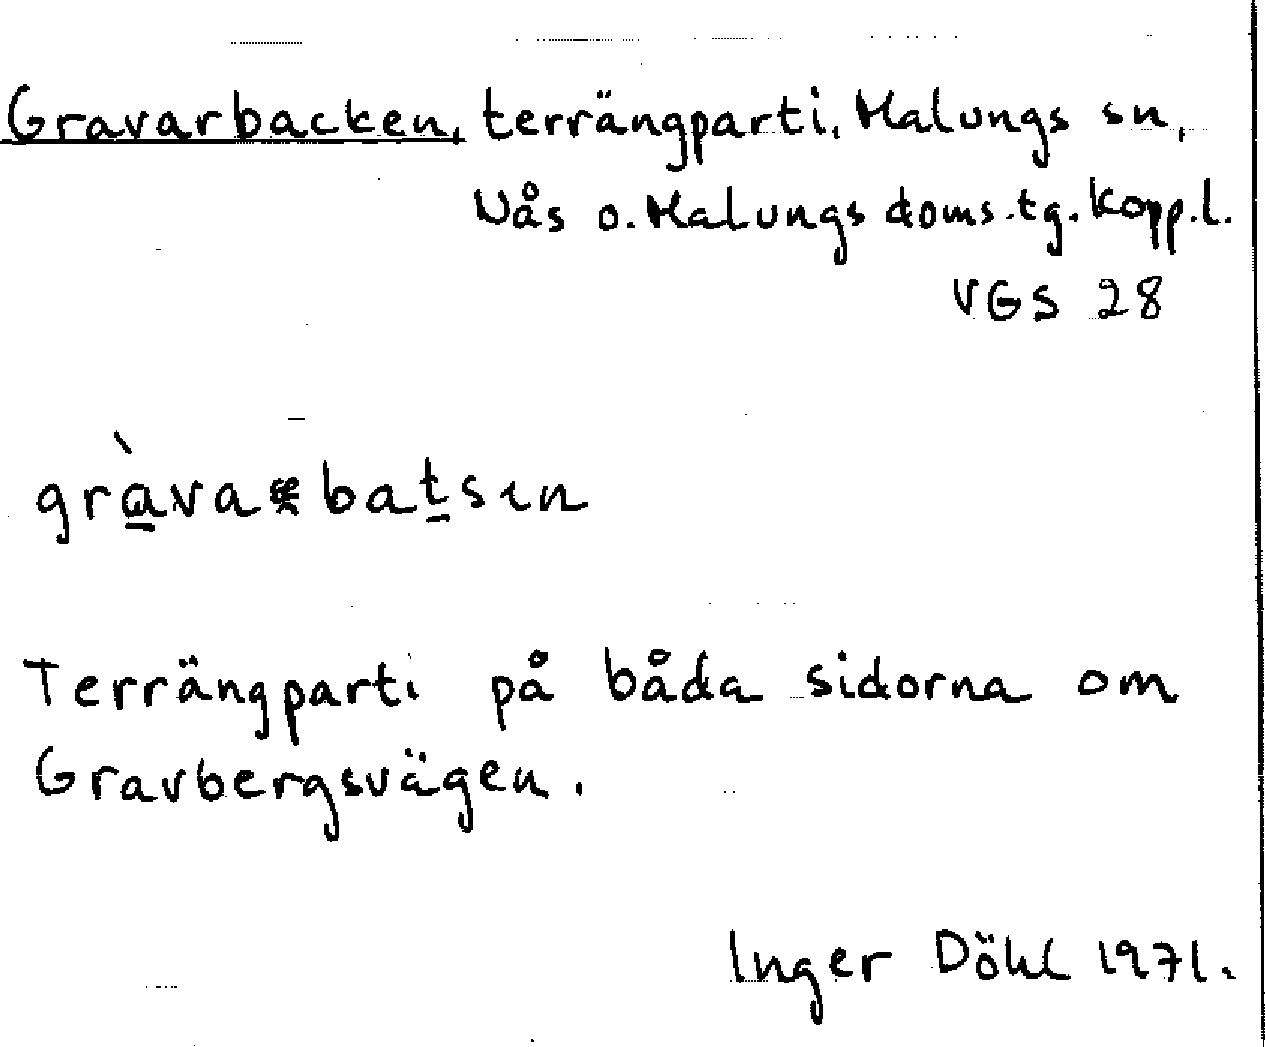 Gravarbacken, terrängparti, Malungs sn,
Nås o. Malungs doms.tg. Kopp.l.
VGS 28
gràva batsın
Terrängparti på båda sidorna om
Gravbergsvägen.
Inger Döhl 1971.